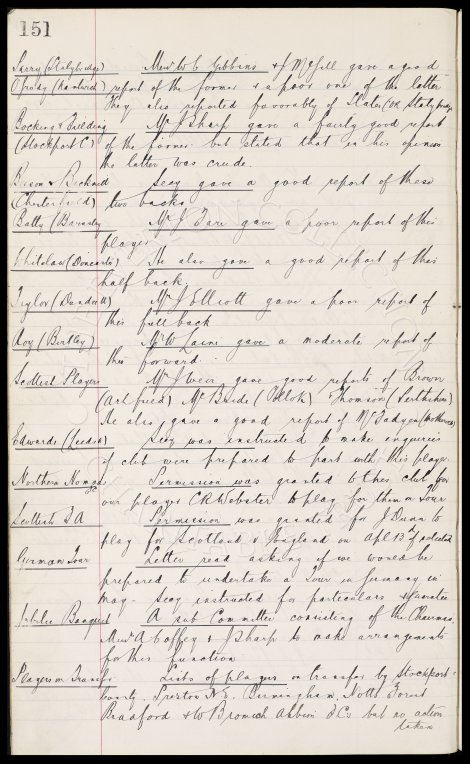 151
Parry (Stalybridge) Messrs W C Gibbins & J McGill gave a good
Grady (Nantwich) report of the former & a poor one of the latter
They also reported favorably of Slater (GK Stalybridge)
Bocking & Fielding Mr J Sharp gave a fairly good report
(Stockport C) of the former but stated that in his opinion
the latter was crude
& Secy gave a good report of these
(Chesterfield) two backs
Batty (Barnsley) Mr J Tare gave a poor report of this
player
Whitelaw (Doncaster) He also gave a good report of this
half back
Taylor (Dundee) Mr J Elliott gave a poor report of
this full back
Roy (Birtley) Mr W Laine gave a moderate report of
this forward
Scottish Players Mr J Weir gave good reports of Brown
McBride (Pollok) Thomson (Perthshire)
He also gave a good report of McFadyen (Motherwell)
Edwards (Leeds) Secy was instructed to make enquiries
if club were prepared to part with this player
Northern Nomads Permission was granted to this club for
our player C R Webster to play for them on Tour
Scottish F A Permission was granted for J Dunn to
play for Scotland v England on Apl 13th if selected
German Tour Letter read asking if we would be
prepared to undertake a Tour in Germany in
May - Secy instructed for particulars & guarantee
Jubilee Banquet A sub Committee consisting of the Chairman,
Messrs A Coffey & J Sharp to make arrangements
for this function
Players on Transfer Lists of players on transfer by Stockport
County, Preston N E, Birmingham, Notts Forest
Bradford & W Bromwich Albion F Cs but no action
taken